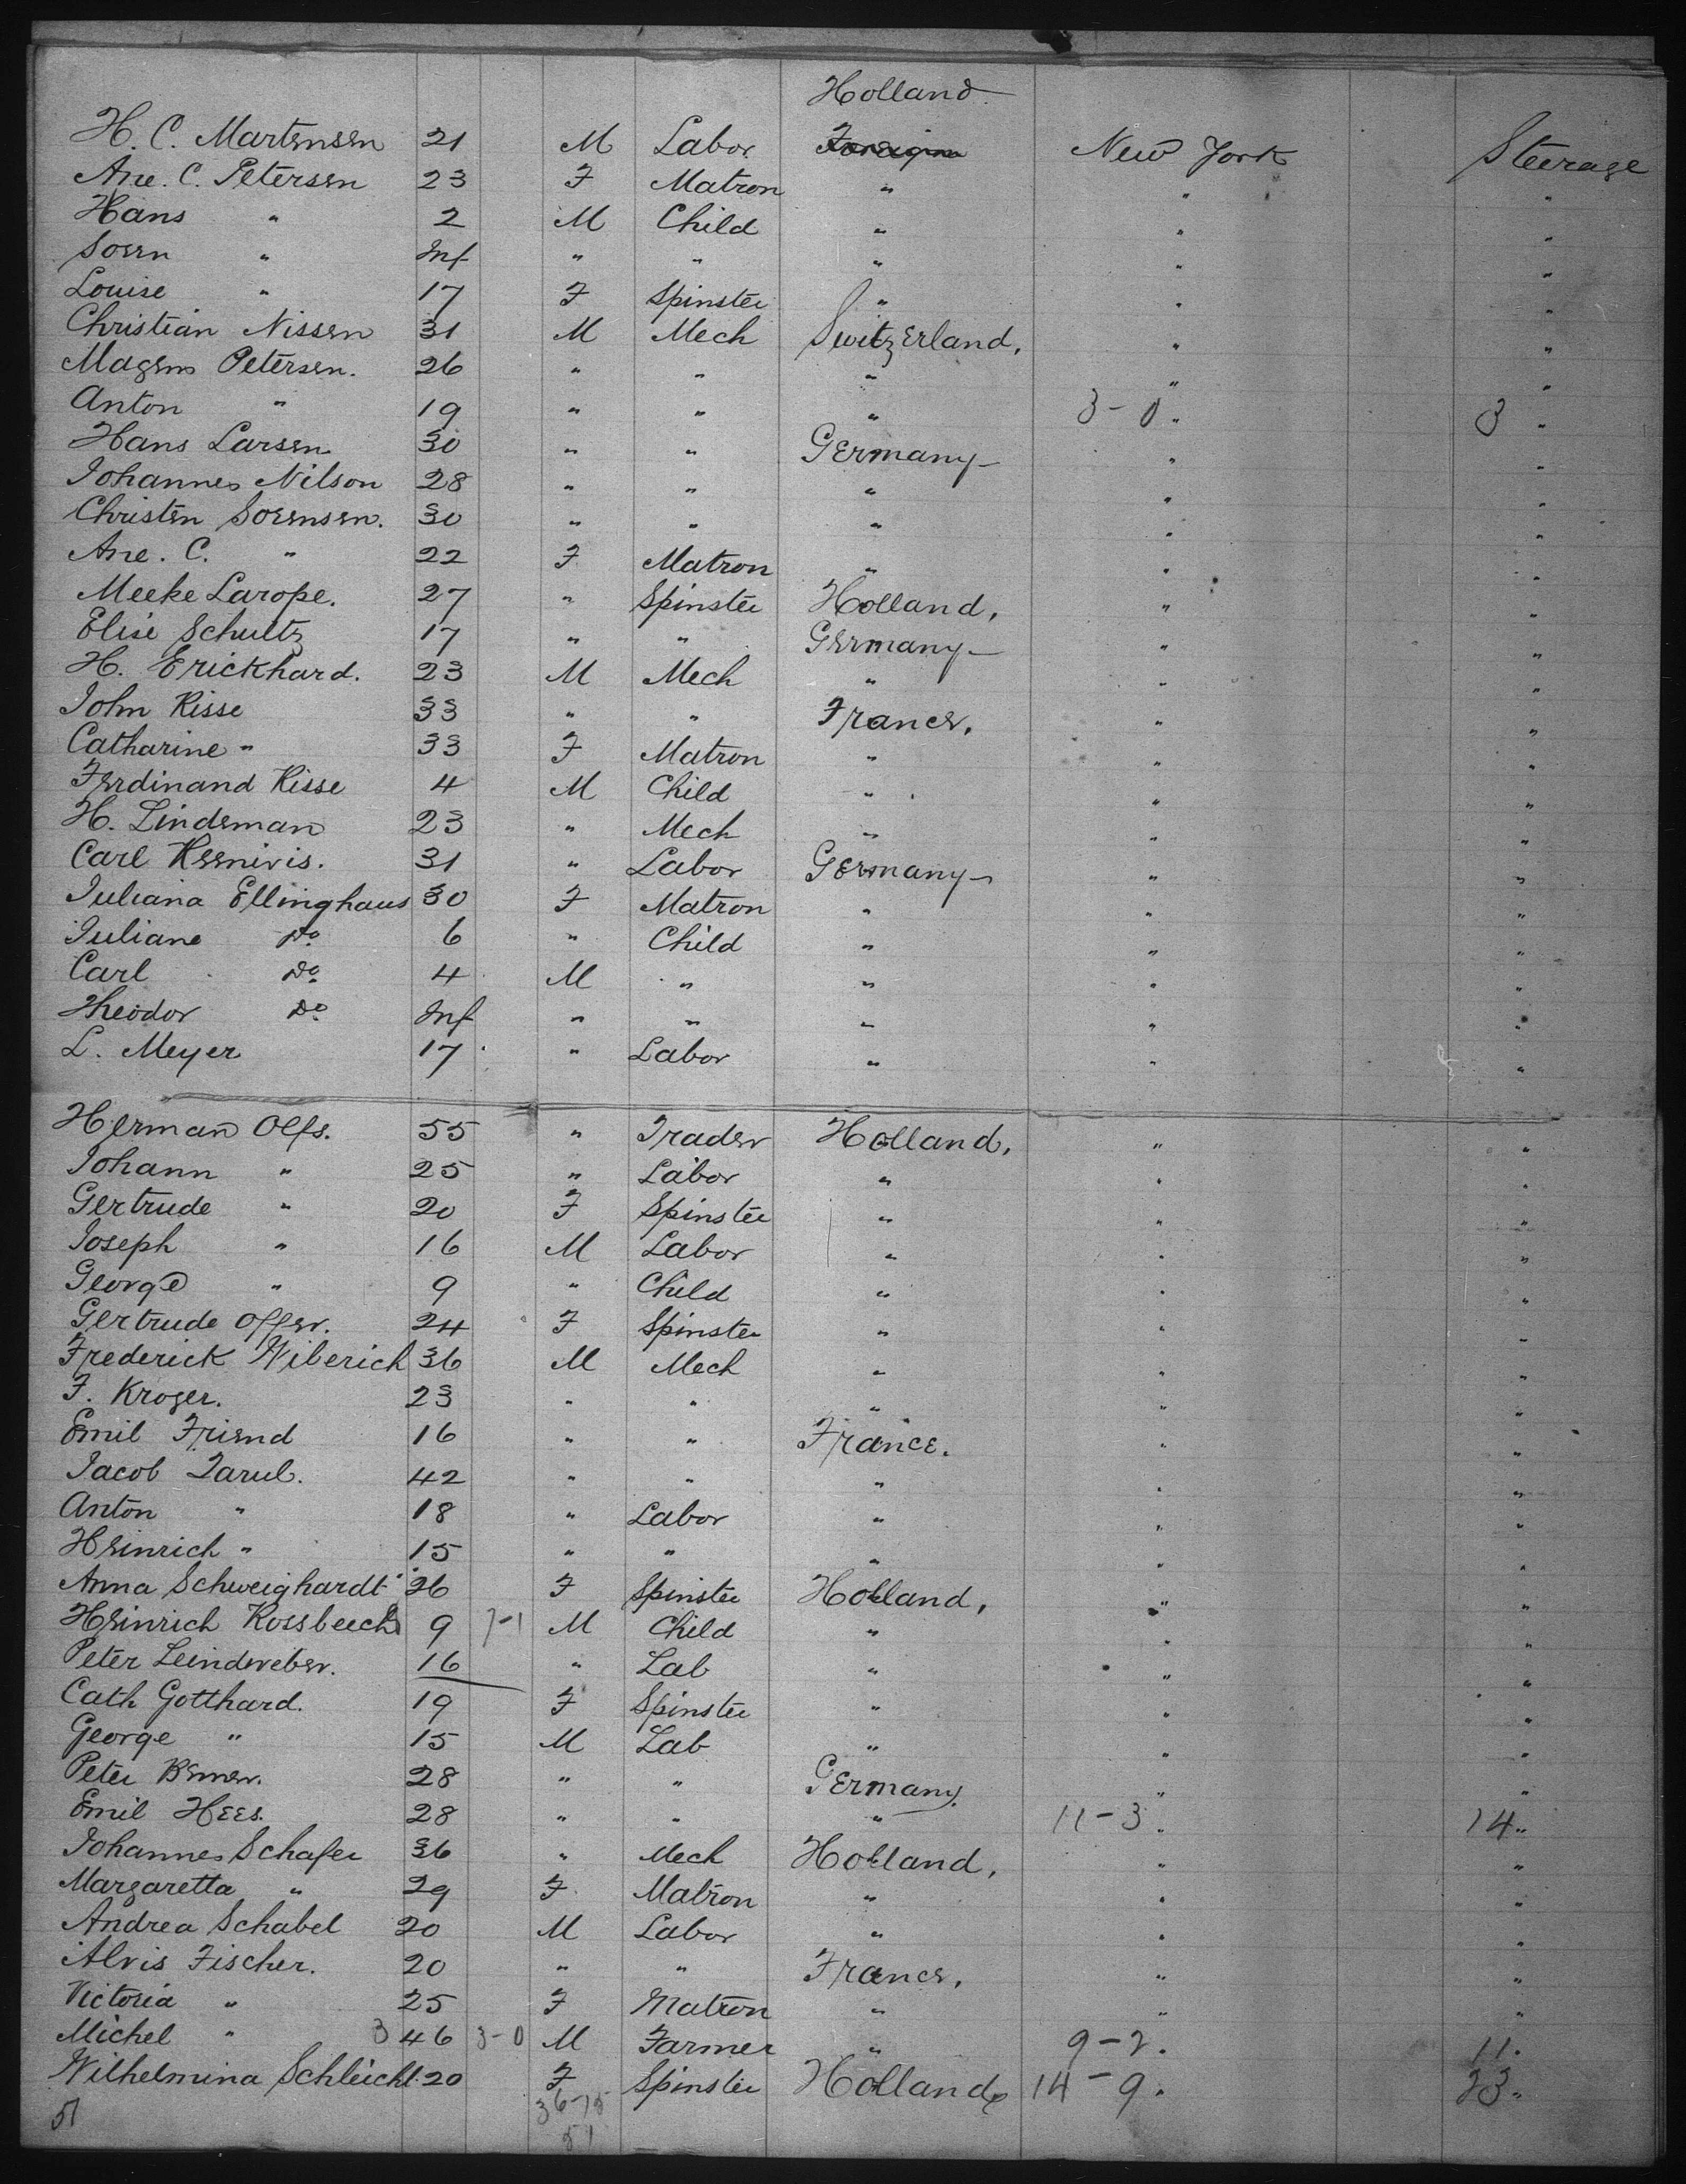 Holland
H. C. Martensen 21 M Labor Foreign New York Steerage
Ane. C. Petersen 23 F Matron " " "
Hans " 2 M Child " " "
Soren " Inf " " " " "
Louise " 17 F Spinster " " "
Christian Nissen 31 M Mech Switzerland. " "
Magens Petersen. 26 " " " " "
Anton " 19 " " " 3-0 " 3 "
Hans Larsen 30 " " Germany " "
Johannes Nilson 28 " " " " "
Christen Sorensen. 30 " " " " "
Ane. C. " 22 F Matron " " "
Meeke Larope. 27 " Spinster Holland, " "
Elise Schultz 17 " " Germany " "
H. Erickhard. 23 M Mech " " "
John Risse 33 " " France, " "
Catharine " 33 F Matron " " "
Ferdinand Risse 4 M Child " " "
H. Lindeman 23 " Mech " " "
Carl 31 " Labor Germany " "
Juliana Ellinghaus 30 F Matron " " "
Juliane Do 6 " Child " " "
Carl Do 4 M " " " "
Theodor Do Inf " " " " "
L. Meyer 17 " Labor " " "
Herman Olfs. 55 " Trader Holland, " "
Johann " 25 " Labor " " "
Gertrude " 20 F Spinster " " "
Joseph " 16 M Labor " " "
George " 9 " Child " " "
Gertrude Offer. 24 F Spinster " " "
Frederick Wiberich 36 M Mech " " "
F. Kroger. 23 " " " " "
Emil Friend 16 " " France. " "
Jacob Tarul. 42 " " " " "
Anton " 18 " Labor " " "
Heinrich " 15 " " " " "
Anna Schweighardt 26 F Spinster Holland, " "
Heinrich Rossbeech 9 7-1 M Child " " "
Peter Leindweber. 16 " Lab " " "
Cath Gotthard. 19 F Spinster " " "
George " 15 M Lab " " "
Peter 28 " " Germany. " "
Emil Hees. 28 " " " 11-3 " 14 "
Johannes Schafer 36 " Mech Holland, " "
Margaretta " 29 F Matron " " "
Andrea Schabel 20 M Labor " " "
Alvis Fischer. 20 " " France, " "
Victoria " 25 F Matron " " "
Michel " 3 46 3-0 M Farmer " 9-2 " 11 "
Wilhelmina Schleicht 20 F Spinster Holland 14-9 " 23 "
51 36-15
51